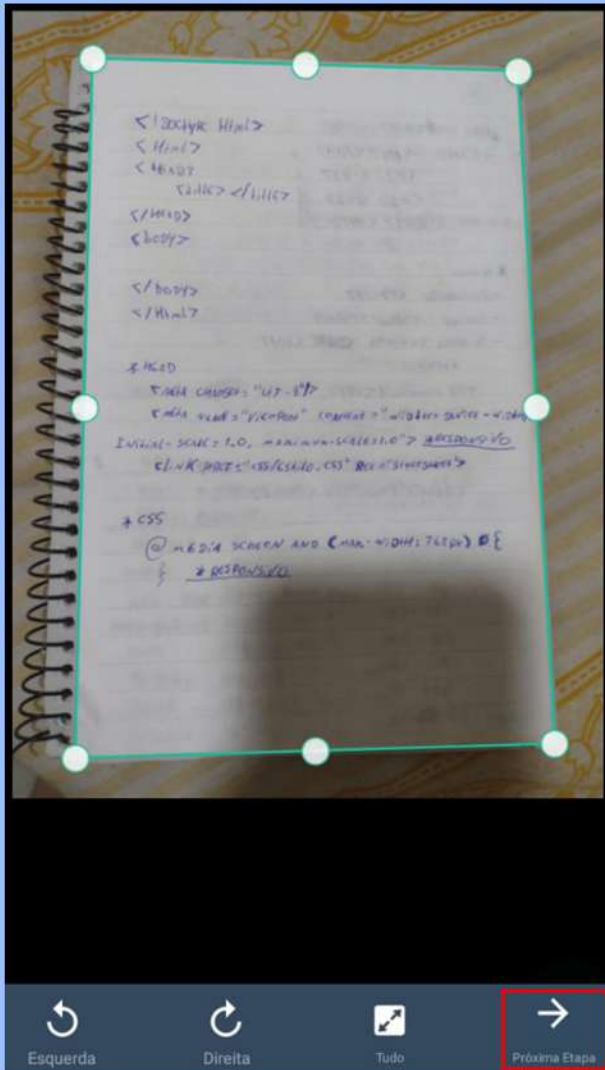 <!Doctype Html>
<Html>
<Head>
<title></title>
</Head>
<body>
</body>
</Html>
* Head
<meta charset="utf-8"/>
<meta name="viewport" content="width=device-width,
Initial-scale=1.0, maximum-scale=1.0"> *RESPONSIVO
<link href="css/estilo.css" rel="stylesheet">
* CSS
@media screen and (max-width: 768px) {
} * RESPONSIVO
Esquerda
Direita
Tudo
Próxima Etapa